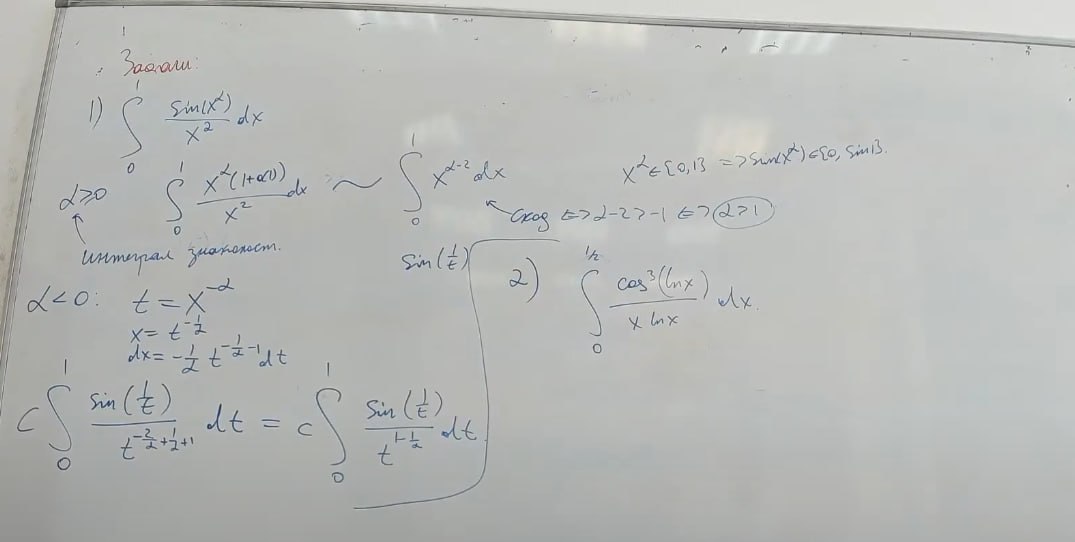 Задачи:
1) ∫₀¹ sin(x^α)/x² dx
α≥0 ∫₀¹ x^α(1+o(1))/x² dx ~ ∫₀¹ x^{α-2} dx
x^α ∈ [0,1] => sin(x^α) ∈ [0, sin1].
сход <=> α-2>-1 <=> α>1
интеграл знакопост.
sin(1/t)
α<0: t = x^{-α}
x = t^{-1/α}
dx = -1/α t^{-1/α-1} dt
C ∫₀¹ sin(1/t)/t^{-2/α+1/α+1} dt = C ∫₀¹ sin(1/t)/t^{1-1/α} dt
2) ∫₀^{1/2} cos³(ln x)/(x ln x) dx.